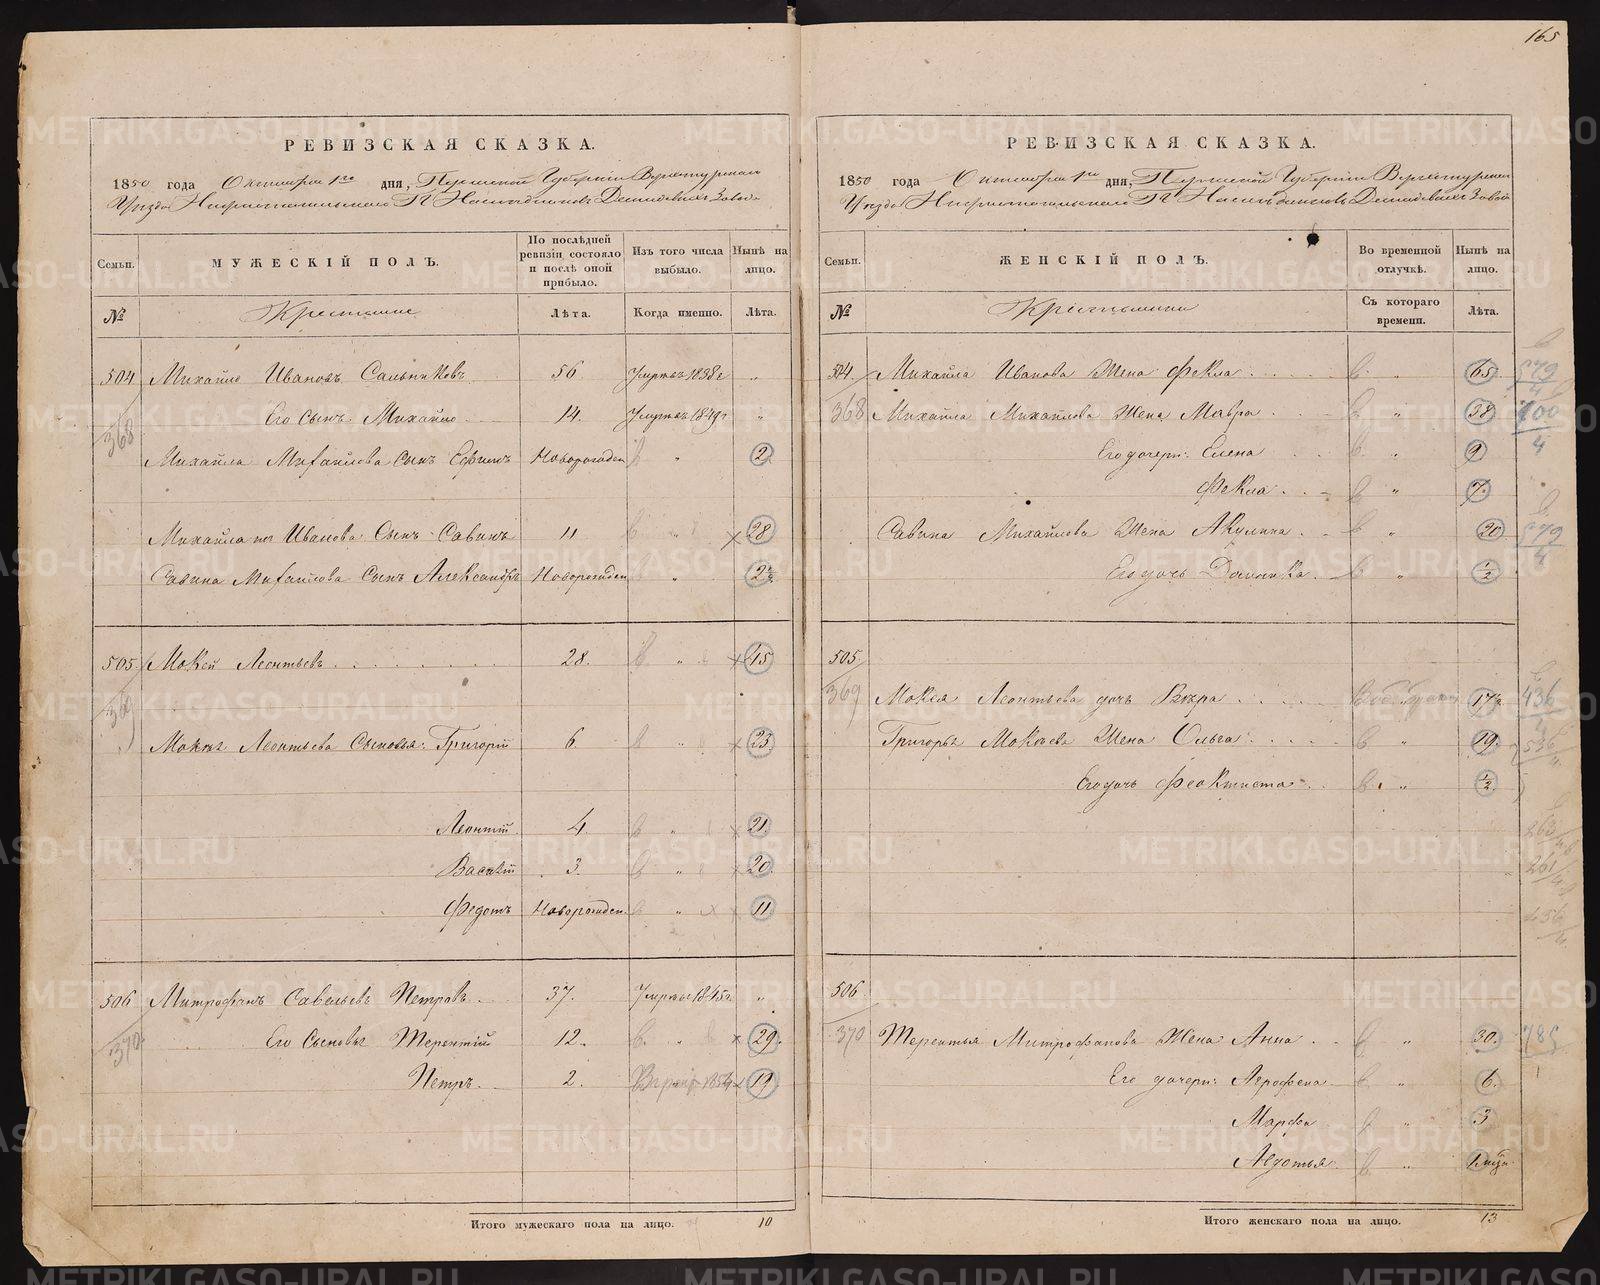 165
РЕВИЗСКАЯ СКАЗКА.
1850 года Октября 1го дня, Пермской Губернии Верхотурскаго
Уѣзда Нижнетагильскаго Гг. Наслѣдниковъ Демидовыхъ Завода
Семьи. МУЖЕСКІЙ ПОЛЪ. По послѣдней ревизіи состояло и послѣ оной прибыло. Изъ того числа выбыло. Нынѣ на лицо.
№ Крестьяне Лѣта. Когда именно. Лѣта.
504 Михайло Ивановъ Сальниковъ 56 Умреъ 1838 г "
368 Его Сынъ Михайло 14. Умреъ 1849 г "
Михайла Михайлова сынъ Ефимъ Новорожден " 2
Михайла Иванова Сынъ Савинъ 11 " 28
Савина Михайлова Сынъ Александръ Новорожден " 2½
505. Мокей Леонтьевъ 28. " 45
369
Мокея Леонтьева Сыновья: Григорій 6. " 23
Леонтій 4. " 21.
Василій 3. " 20.
Федотъ Новорожден. " 11
506 Митрофанъ Савельевъ Петровъ 37. Умреъ 1845 г. "
370 Его Сыновья Терентій 12. " 29.
Петръ 2. 1854 19
Итого мужескаго пола на лицо. 10
РЕВИЗСКАЯ СКАЗКА.
1850 года Октября 1го дня, Пермской Губерніи Верхотурскаго
Уѣзда Нижнетагильскаго Гг. Наслѣдниковъ Демидовыхъ Завода
Семьи. ЖЕНСКІЙ ПОЛЪ. Во временной отлучкѣ. Нынѣ на лицо.
№ Крестьянки Съ котораго времени. Лѣта.
504. Михайла Иванова Жена Фекла в. " 65.
368 Михайла Михайлова Жена Мавра в. " 38
Его дочери: Елена в. " 9
Фекла в " 7.
Савина Михайлова Жена Акулина в " 20
Его дочь Домника в " ½
505
369 Мокея Леонтьева дочь Вѣра 17½
Григорья Мокѣева Жена Ольга в " 19.
Его дочь Феоктиста в. " ½
506
370 Терентья Митрофанова Жена Анна в " 30.
Его дочери: Агрофена в " 6.
Марфа в " 3
Авдотья в " 1 мѣся.
Итого женскаго пола на лицо. 13
579
100
4
579
4
436
536
263
261
436
785
1
METRIKI.GASO-URAL.RU